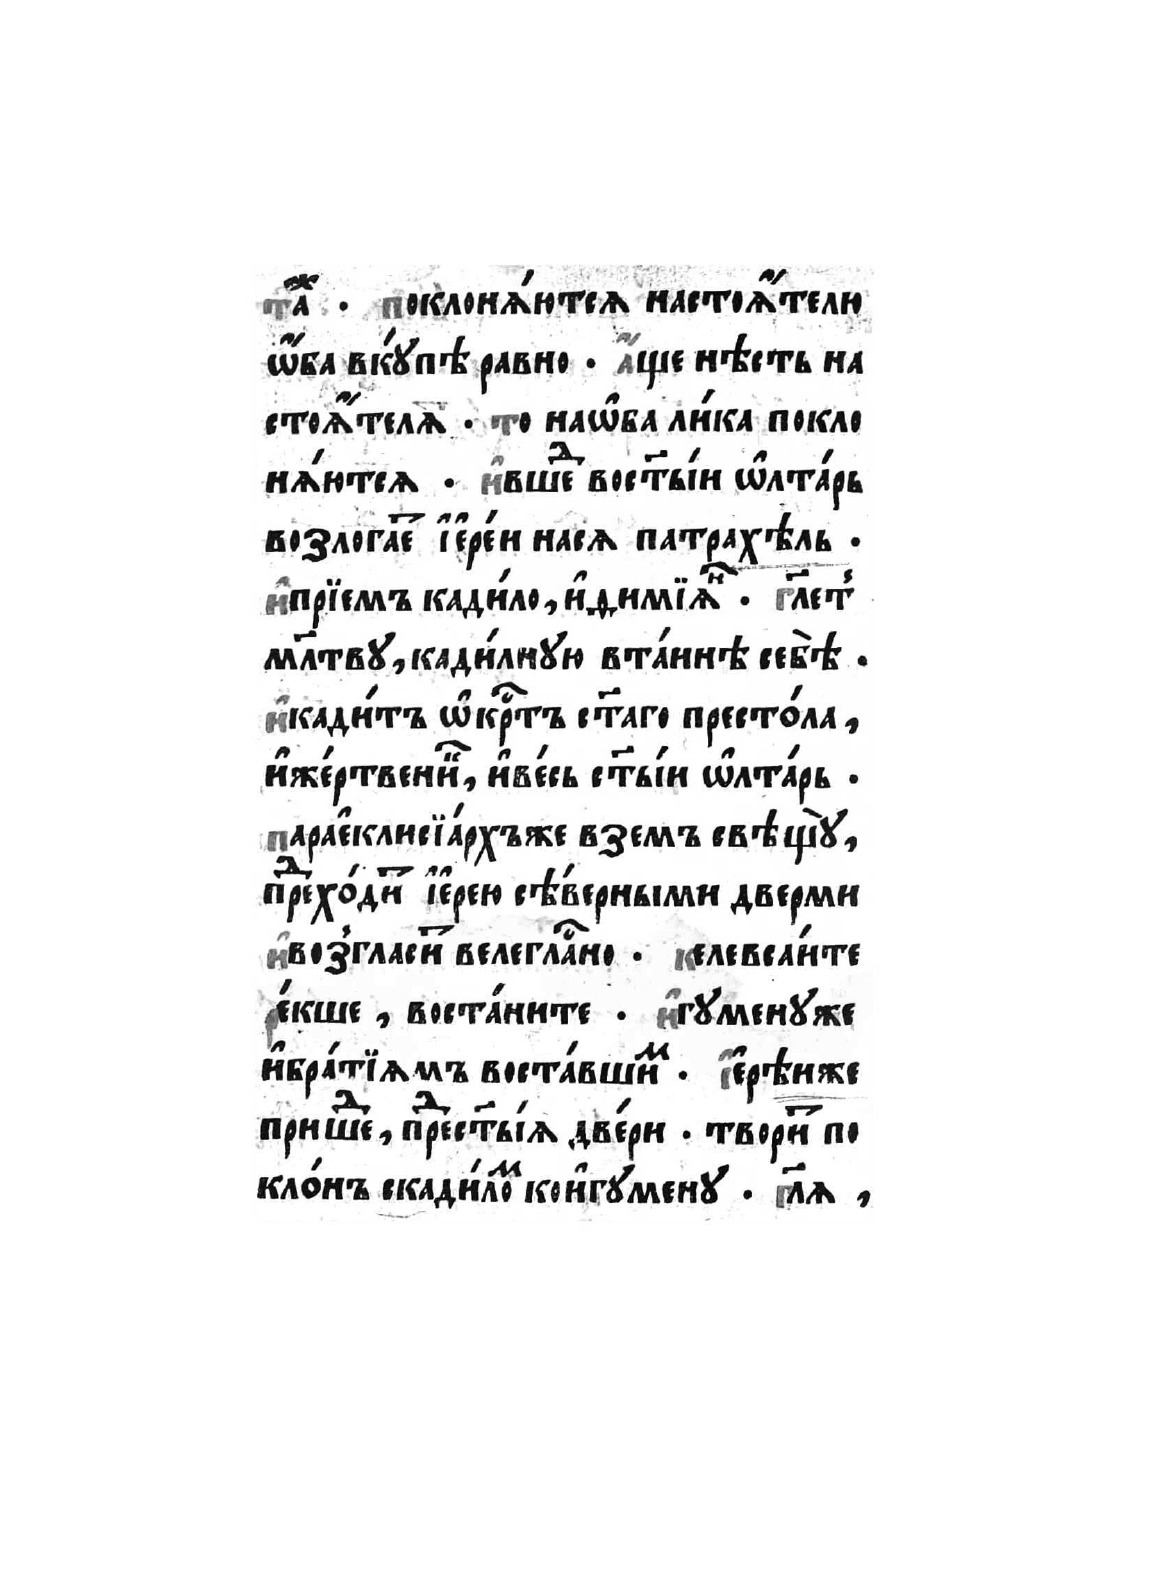 та́ⷤ · поклонѧ́ютсѧ настоѧ́телю
ѡ҆́ба вкꙋ́пѣ равно · а҆́ще нѣсть на
стоѧ́телѧ · то наѡ҆ба ли́ка покло
нѧ́ютсѧ · и҆вшеⷣ вост҃ы́и ѡ҆лта́рь
возлогаеⷮ і҆е҆ре́и насѧ патрахѣ́ль ·
и҆прїемъ кади́ло, и҆димїѧⷩ҇ · гл҃етꙿ
мл҃твꙋ, кади́лнꙋю вта́иннѣ себѣ̀ ·
и҆кади́тъ ѡ҆крⷭ҇тъ ст҃аго престо́ла,
и҆же́ртвениⷦ҇, и҆ве́сь ст҃ы́и ѡ҆лта́рь ·
парае҆клисїа́рхъже вземъ свѣщꙋ̀,
преⷣхо́диⷮ і҆е҆рею сѣ́верными дверми
и҆возꙿгласиⷮ велегла́ⷭ҇но · келевсаи́те
ре́кше , воста́ните · и҆гꙋменꙋже
и҆бра́тїѧмъ воста́вшиⷨ · і҆е҆рѣиже
пришеⷣ, преⷣст҃ы́ѧ две́ри · твориⷮ по
кло́нъ скади́лоⷨ кои҆гꙋменꙋ · гл҃ѧ ,